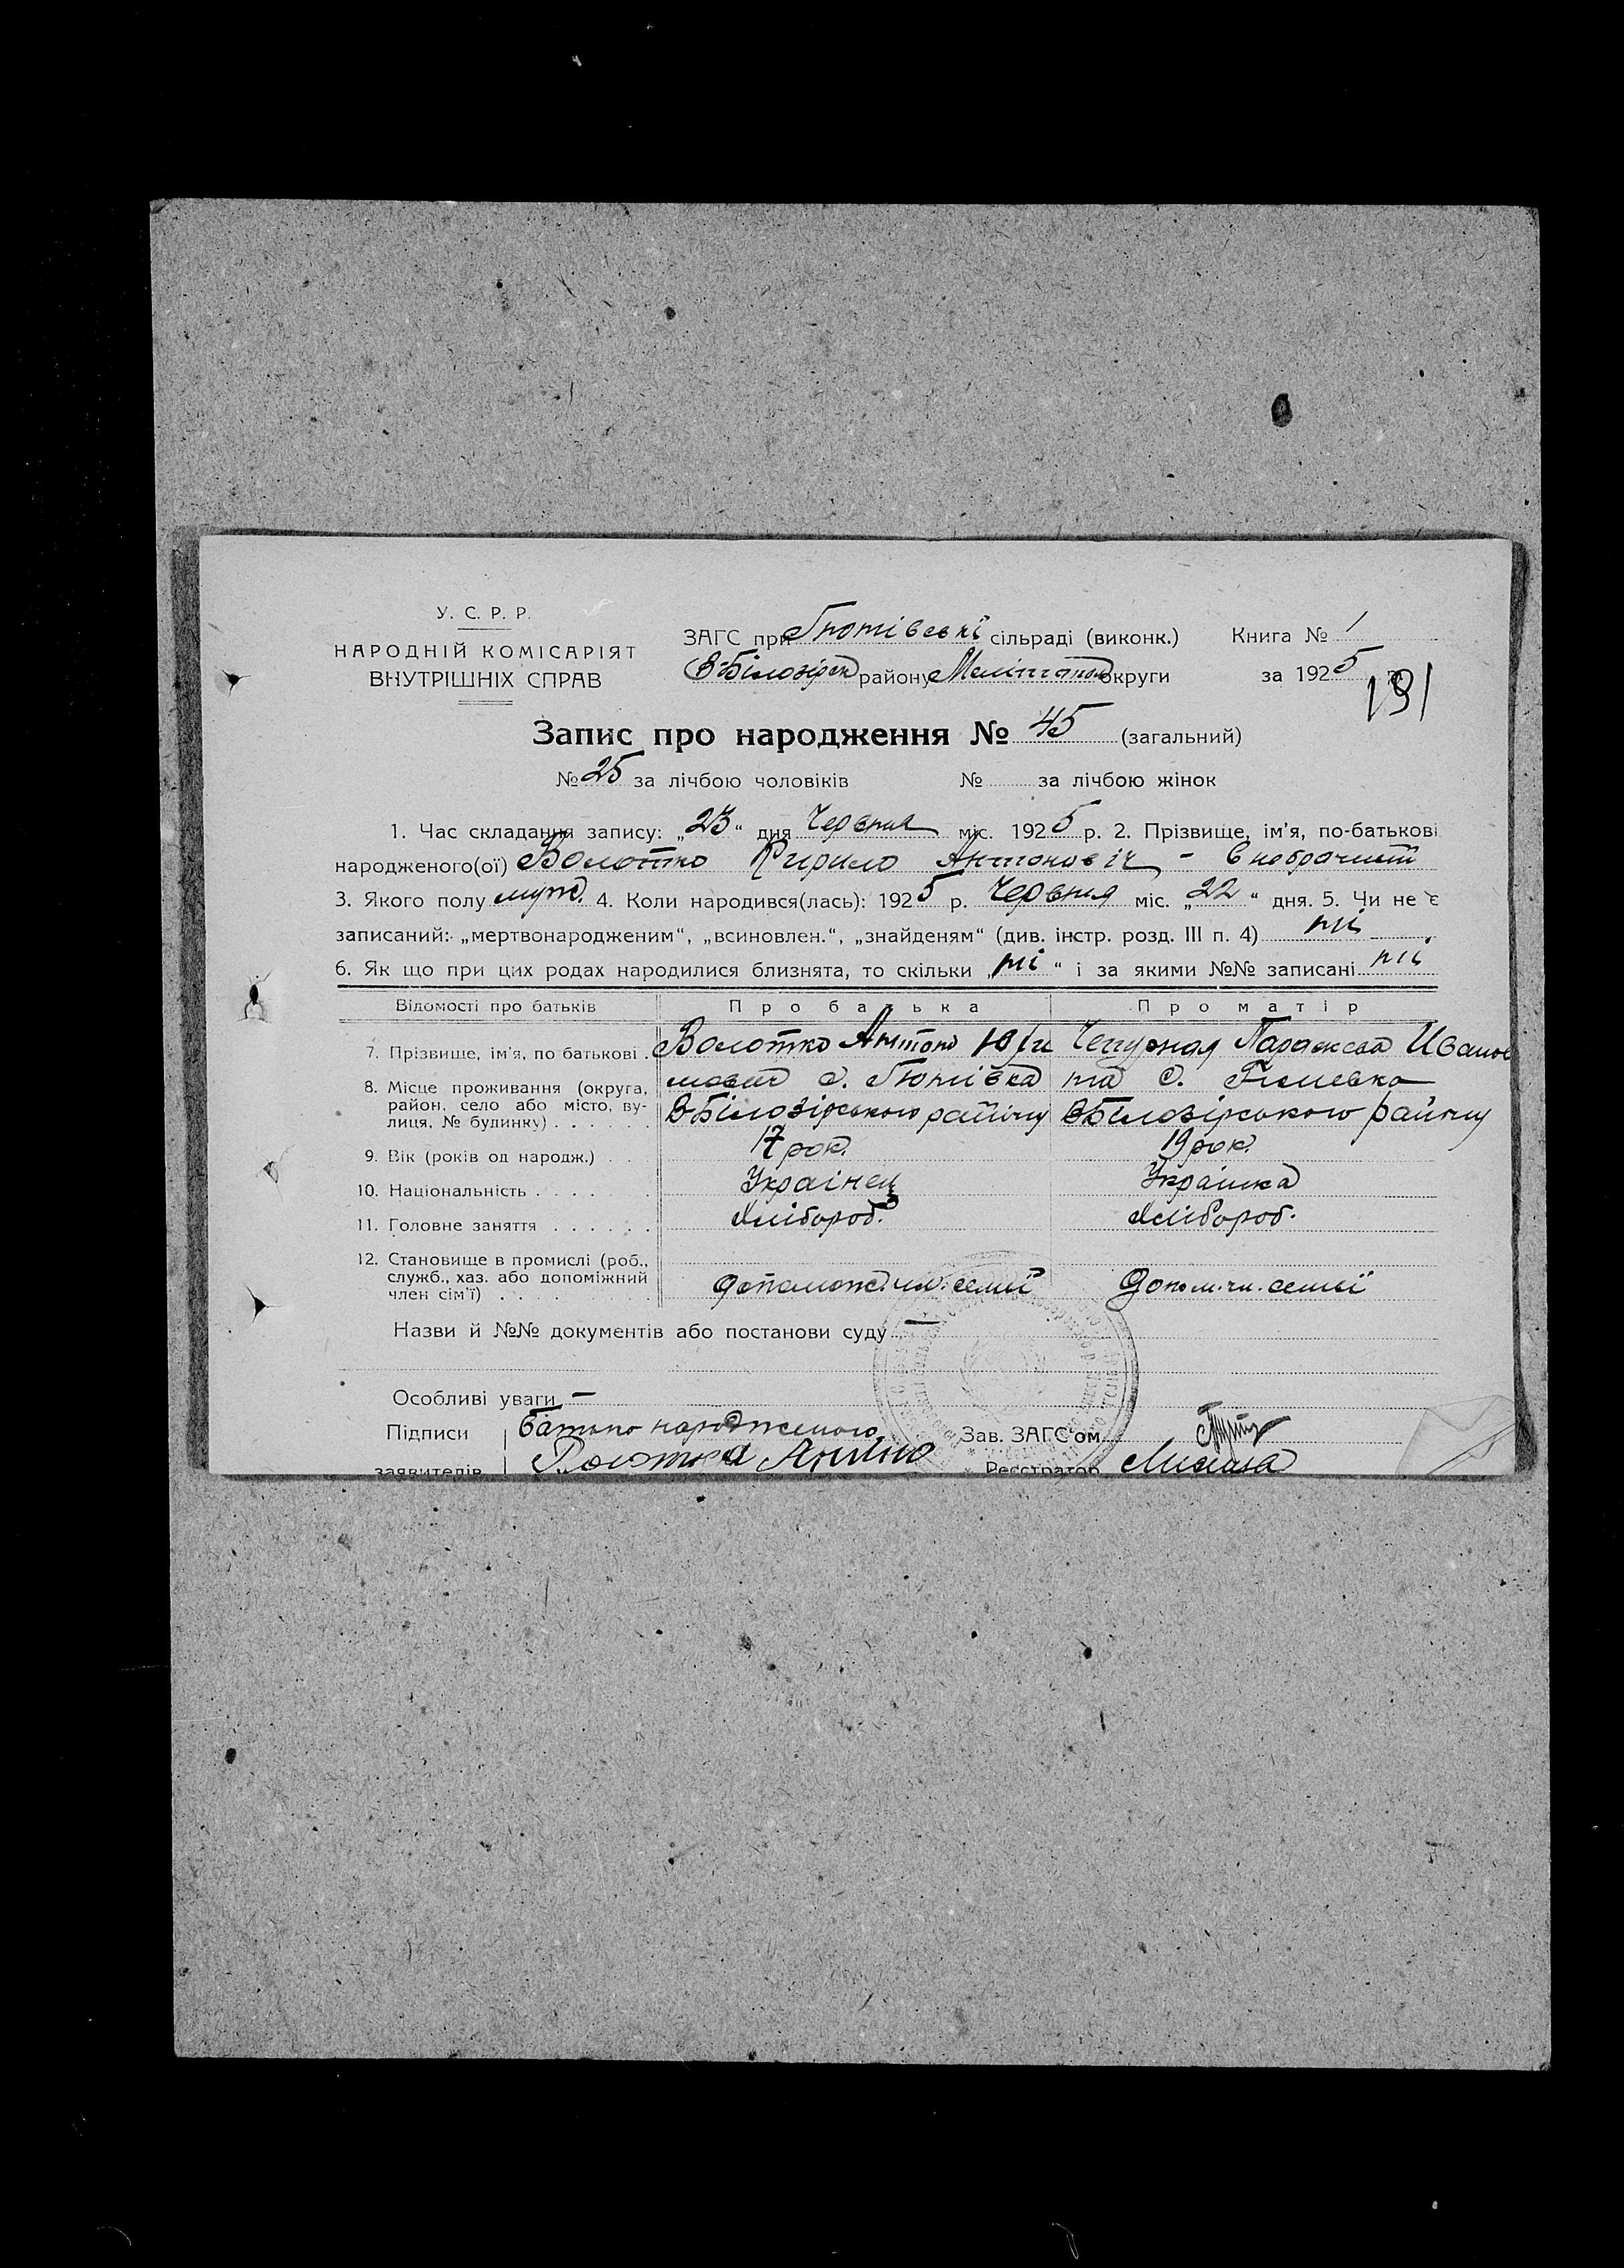 У. С. Р. Р.
НАРОДНІЙ КОМІСАРІЯТ
ВНУТРІШНІХ СПРАВ
ЗАГС при сільраді (виконк.) Книга № 1
В-Білозірск району Меліттопол округи за 1925 р.
191
Запис про народження № 45 (загальний)
№ 25 за лічбою чоловіків № за лічбою жінок
1. Час складання запису: „23“ дня Червня міс. 1925 р. 2. Прізвище, ім'я, по-батькові
народженого(ої) Волотко Кирило Антонович -
3. Якого полу муж. 4. Коли народився(лась): 1925 р. Червня міс. „22“ дня. 5. Чи не є
записаний: „мертвонародженим“, „всиновлен.“, „знайденям“ (див. інстр. розд. III п. 4) ні
6. Як що при цих родах народилися близнята, то скільки „ні“ і за якими №№ записані ні
Відомості про батьків Про батька Про матір
7. Прізвище, ім'я, по батькові . Волотко Антон Чепурная Параскева Иванов
8. Місце проживання (округа, район, село або місто, вулиця, № будинку) . . . . . . с. на с.
В-Білозірського району В-Білозірського району
9. Вік (років од народж.) . . . 17 рок. 19 рок.
10. Національність . . . . . . Украінец Украінка
11. Головне заняття . . . . . . Хлібороб. Хлібороб.
12. Становище в промислі (роб., служб., хаз. або допоміжний член сім'ї) . . . . . . допомож. чл. семьї допом. чл. семьї
Назви й №№ документів або постанови суду —
Особливі уваги —
Підписи батько народженого Зав. ЗАГС'ом
заявителів Реєстратор